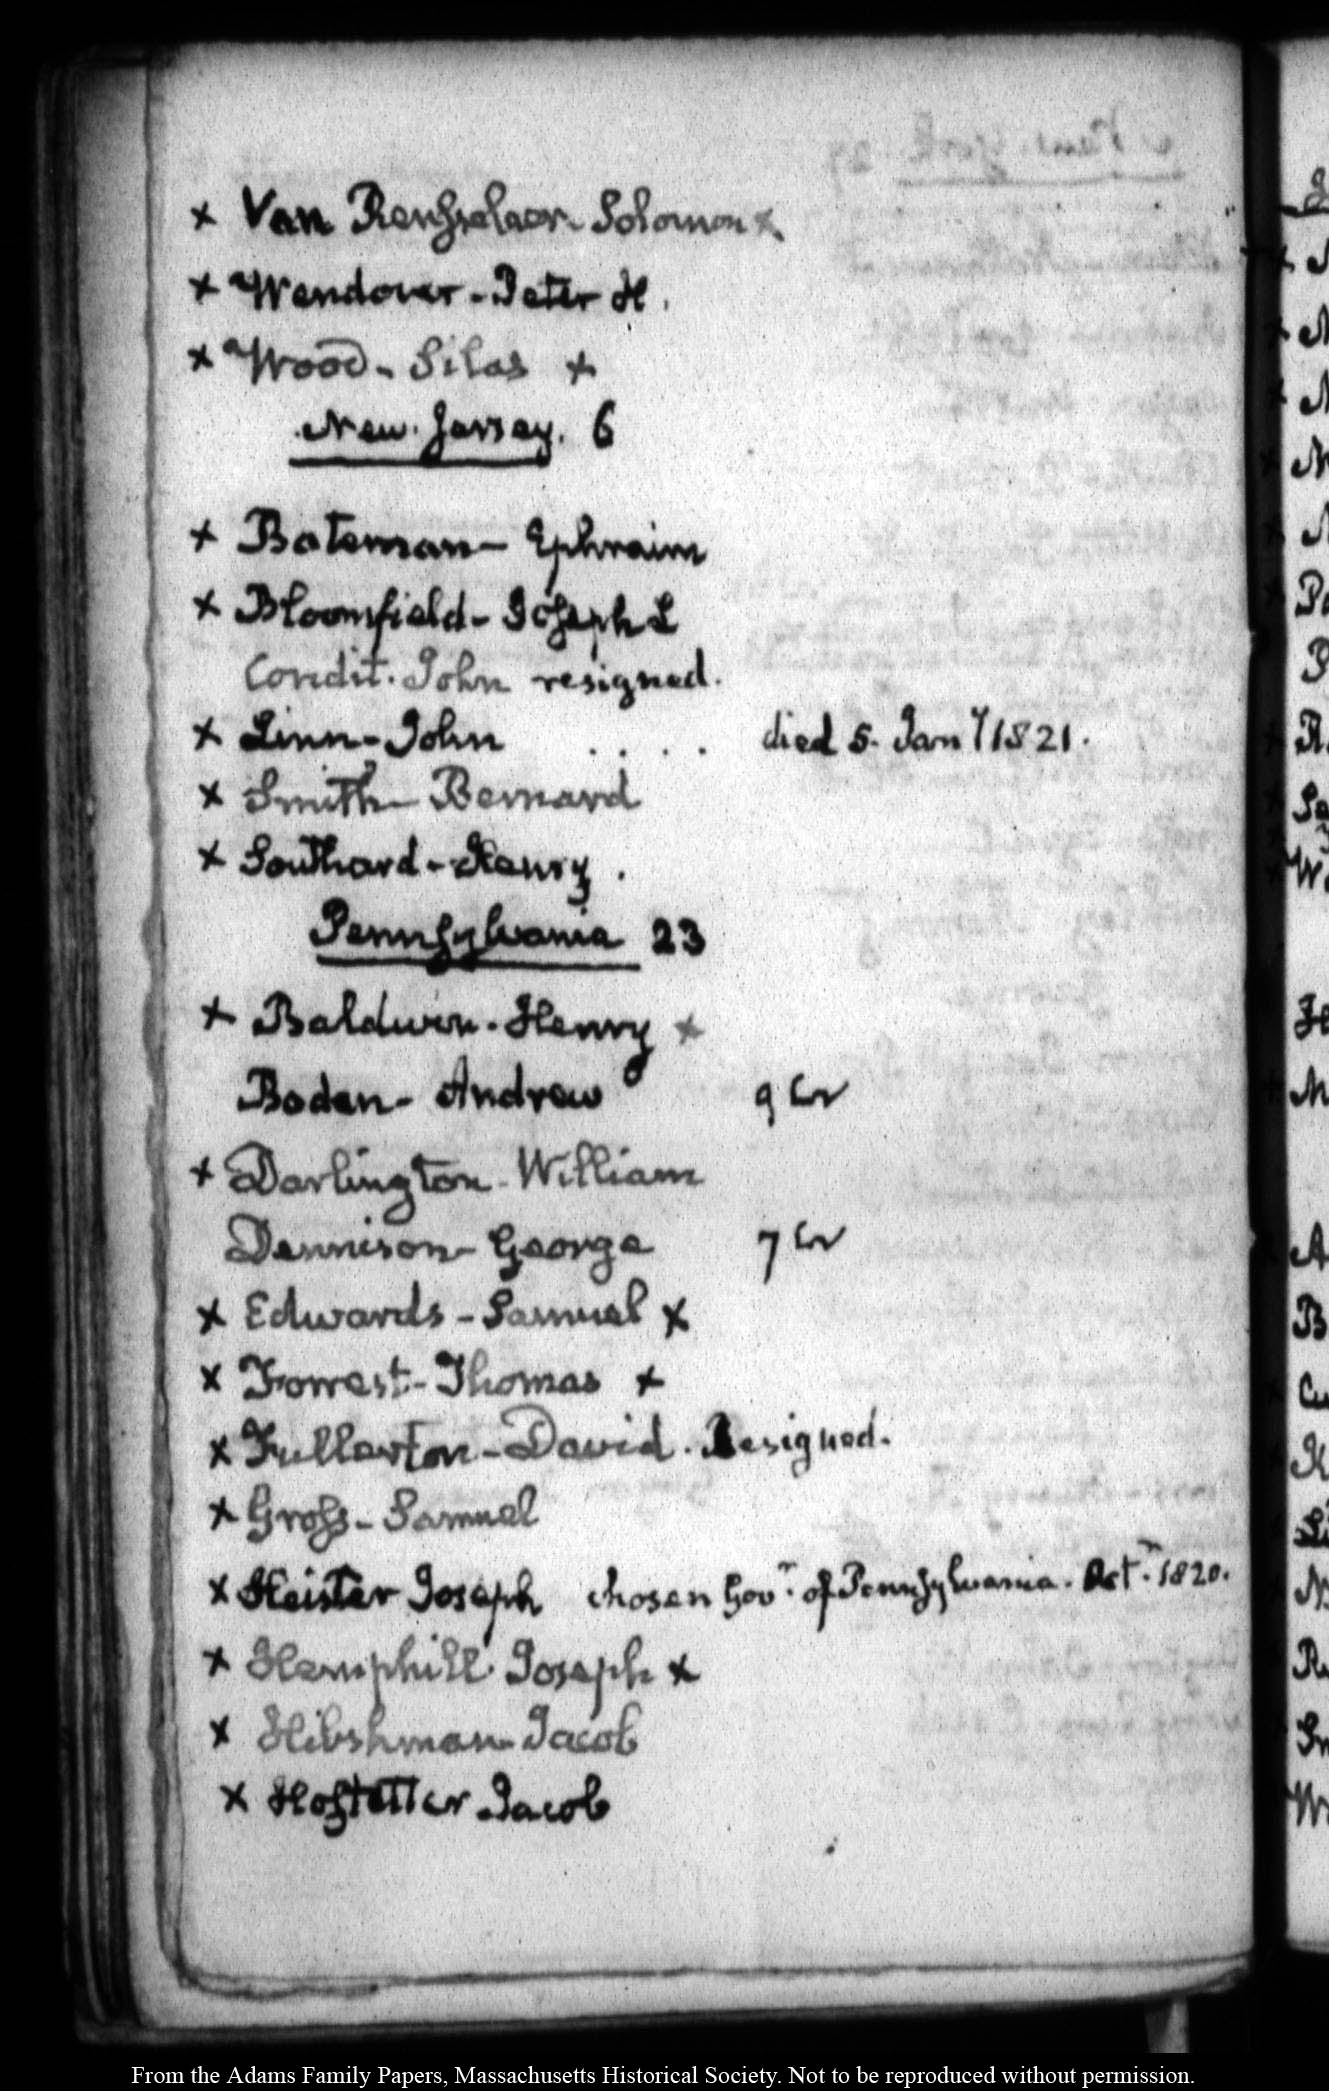 x Van Rensselaer Solomon x
x Wendover - Peter H.
x Wood - Silas x
New Jersey. 6
x Bateman - Ephraim
x Bloomfield - Joseph
Condit. John resigned.
x Linn - John . . . . died 5. Jany 1821.
x Smith - Bernard
x Southard - Henry.
Pennsylvania 23
x Baldwin. Henry x
Boden - Andrew 9
x Darlington - William
Dennison - George 7
x Edwards - Samuel x
x Forrest - Thomas x
x Fullerton - David. Resigned.
x Gross - Samuel
x Heister Joseph chosen Govr. of Pennsylvania. Octr. 1820.
x Hemphill Joseph x
x Hibshman Jacob
x Hostetter Jacob
From the Adams Family Papers, Massachusetts Historical Society. Not to be reproduced without permission.